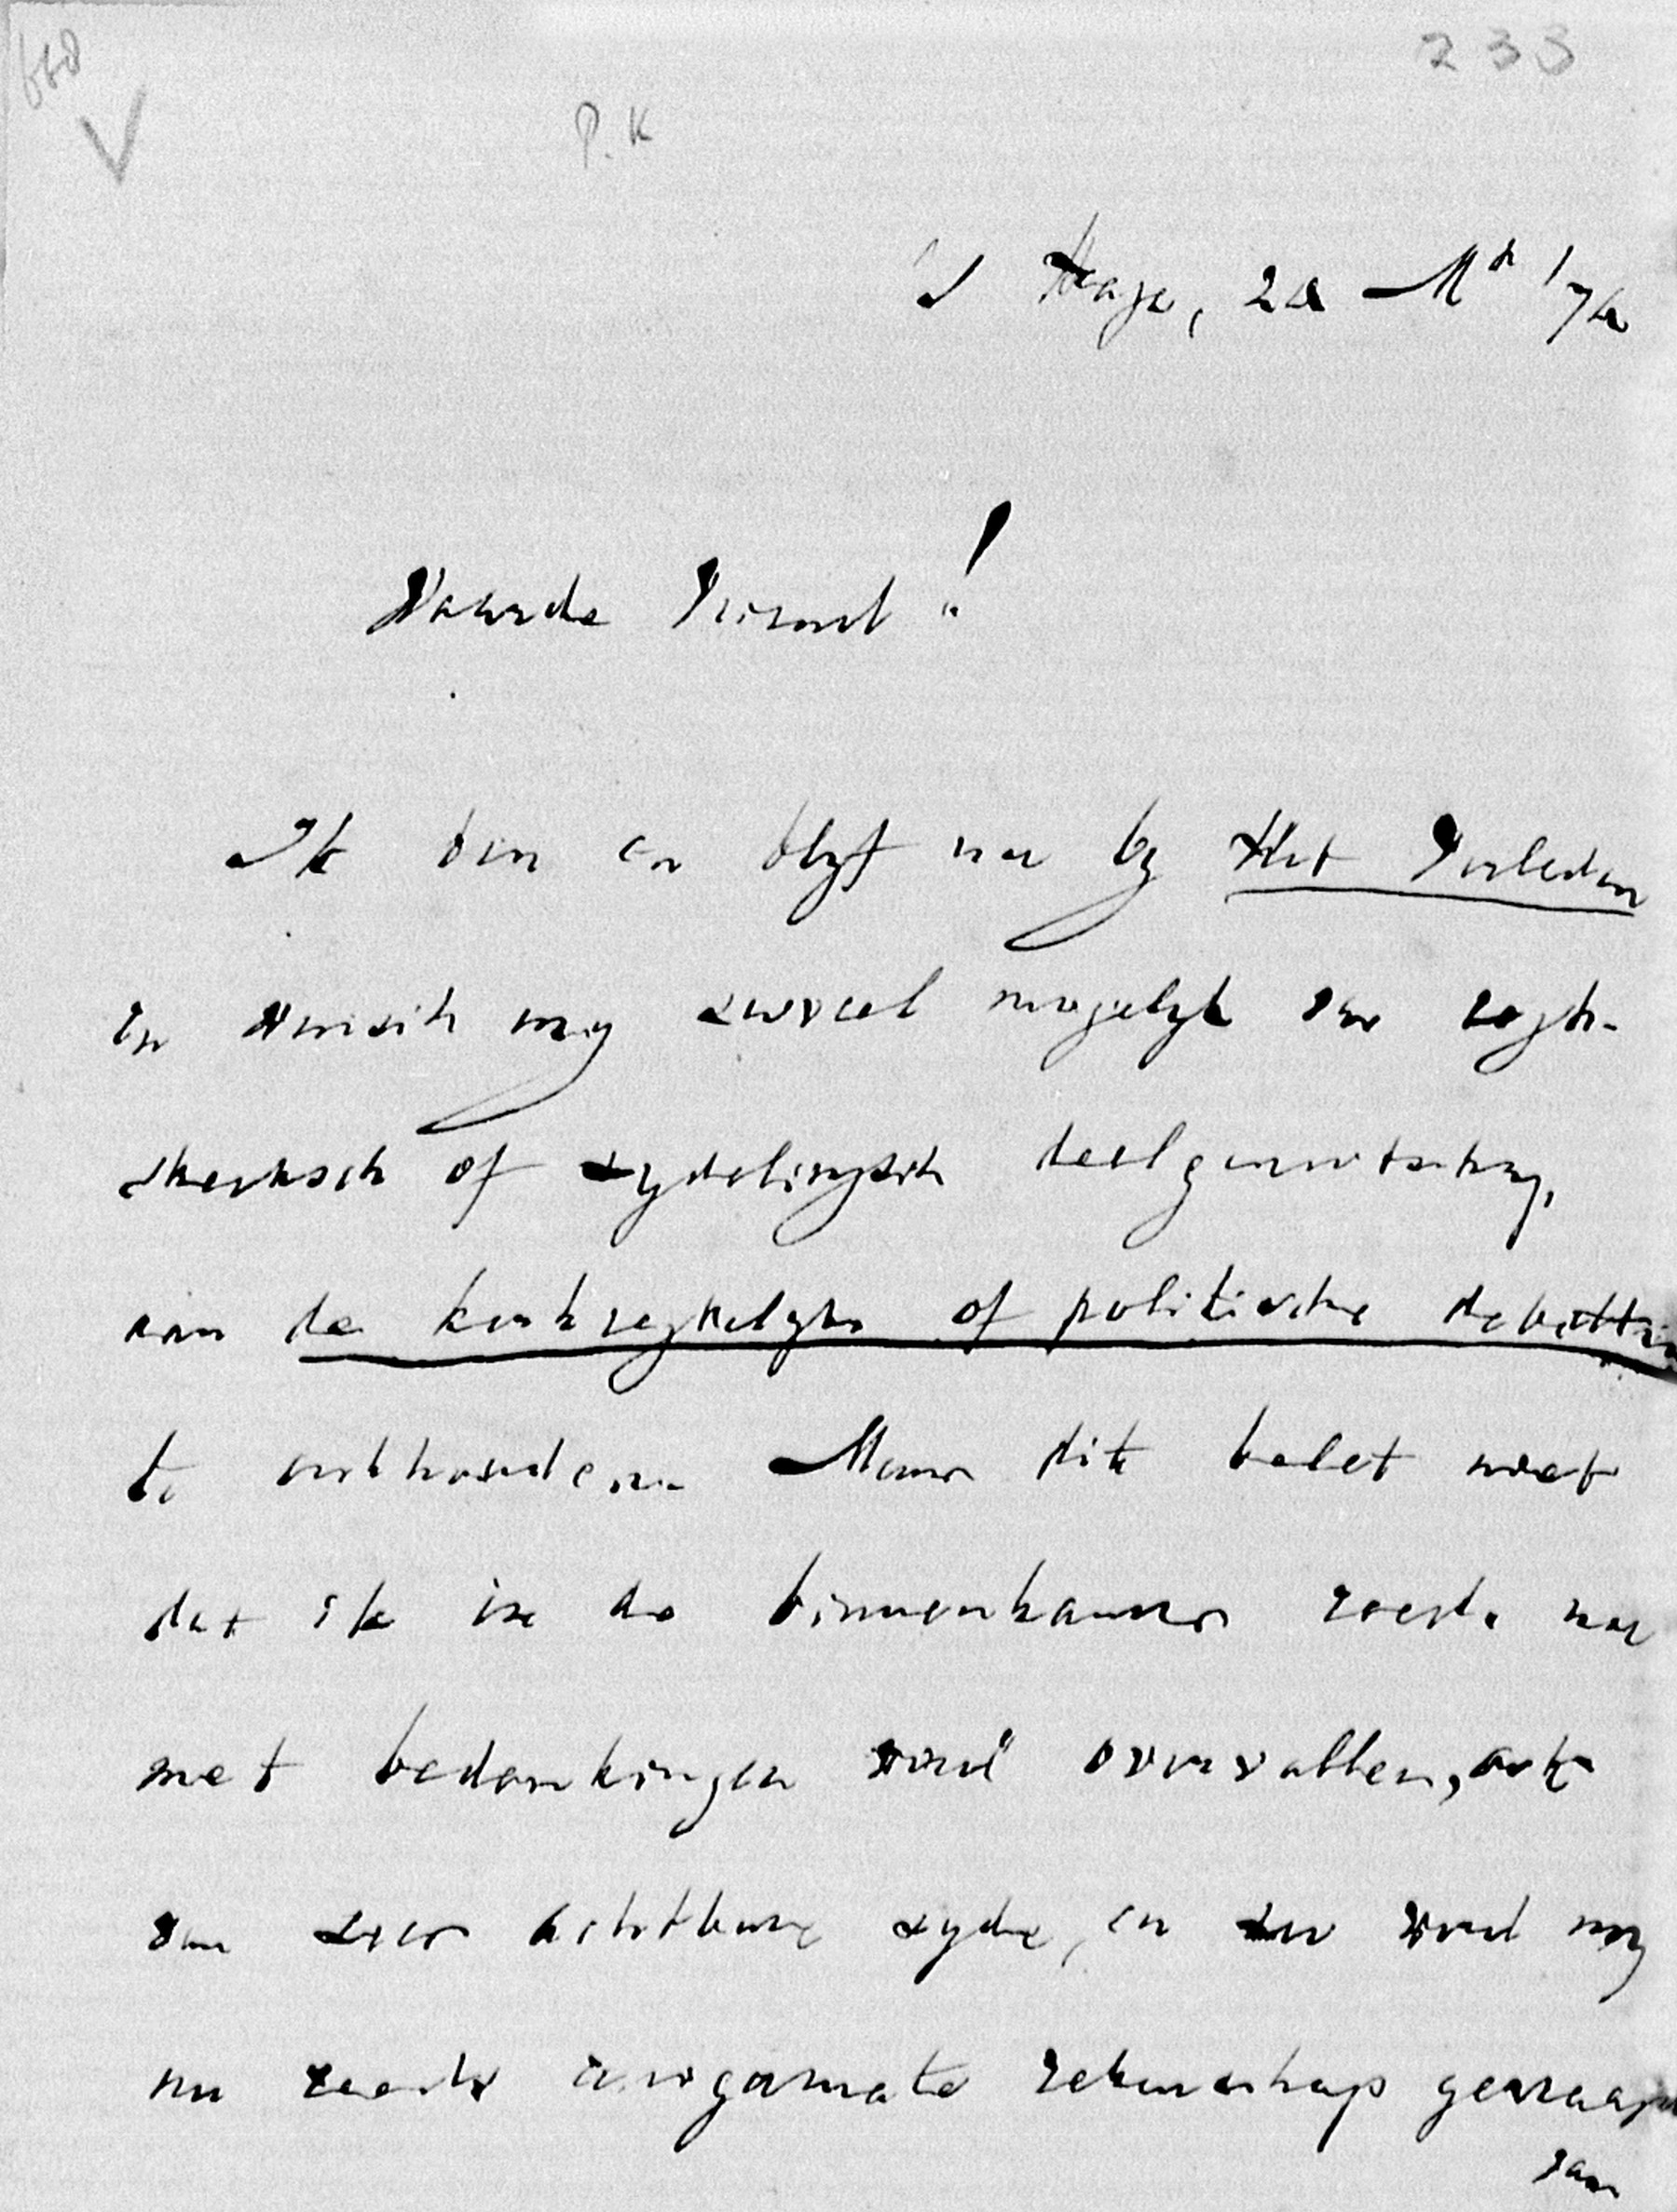 233
P. K
's Hage, 24 Mrt '74
Waarde Vriend!
Ik ben en blyf nu by Het Verleden
en wensch my zooveel mogelyk van regt-
streeksch of zydelingsch deelgenootschap
aan de kerkregtelyke of politische debatten
te onthouden. Maar dit belet niet
dat ik in de binnenkamer reeds nu
met bedenkingen word overvallen, ook
van zeer achtbare zyde, en zoo word my
nu reeds eenigermate rekenschap gevraagd
van